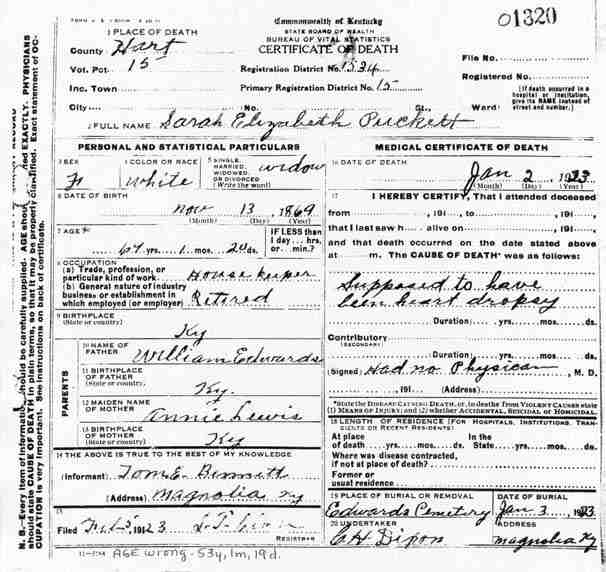 01320
1 PLACE OF DEATH
Commonwealth of Kentucky
STATE BOARD OF HEALTH
BUREAU OF VITAL STATISTICS
CERTIFICATE OF DEATH
County Hart
Vot. Pct 15
Inc. Town
City No. St. Ward
Registration District No. 1534
Primary Registration District No. 15
File No.
Registered No.
[If death occurred in a hospital or institution, give its NAME instead of street and number.]
2 FULL NAME Sarah Elizabeth Puckett
PERSONAL AND STATISTICAL PARTICULARS
3 SEX F
4 COLOR OR RACE White
5 SINGLE, MARRIED, WIDOWED, OR DIVORCED (Write the word) widow
6 DATE OF BIRTH
Nov 13, 1869
(Month) (Day) (Year)
7 AGE
IF LESS than 1 day...hrs. or...min.?
yrs. 1 mos. ds.
8 OCCUPATION
(a) Trade, profession, or particular kind of work House keeper
(b) General nature of industry business or establishment in which employed (or employer) Retired
9 BIRTHPLACE
(State or country) Ky
PARENTS
10 NAME OF FATHER William Edwards
11 BIRTHPLACE OF FATHER (State or country) Ky.
12 MAIDEN NAME OF MOTHER Annie Lewis
13 BIRTHPLACE OF MOTHER (State or country) Ky
14 THE ABOVE IS TRUE TO THE BEST OF MY KNOWLEDGE
(Informant) Tom E. Bennett
(Address) Magnolia Ky
15
Filed 3 1912 3
REGISTRAR
MEDICAL CERTIFICATE OF DEATH
16 DATE OF DEATH
Jan 2, 1923
(Month) (Day) (Year)
17 I HEREBY CERTIFY, That I attended deceased
from , 191 , to , 191 ,
that I last saw h alive on , 191 ,
and that death occurred on the date stated above
at m. The CAUSE OF DEATH* was as follows:
Supposed to have
been heart dropsy
(Duration) yrs. mos. ds.
Contributory
(SECONDARY)
(Duration) yrs. mos. ds.
(Signed) Had no Physican, M. D.
, 191 (Address)
*State the DISEASE CAUSING DEATH, or, in deaths from VIOLENT CAUSES state (1) MEANS OF INJURY; and (2) whether ACCIDENTAL, SUICIDAL or HOMICIDAL.
18 LENGTH OF RESIDENCE (FOR HOSPITALS, INSTITUTIONS, TRANSIENTS OR RECENT RESIDENTS)
At place of death yrs. mos. ds. In the State yrs. mos. ds.
Where was disease contracted, if not at place of death?
Former or usual residence
19 PLACE OF BURIAL OR REMOVAL
Edwards Cemetery
DATE OF BURIAL
Jan 3, 1923
20 UNDERTAKER
ADDRESS
Magnolia Ky
AGE wrong - 53y, 1m, 19d.